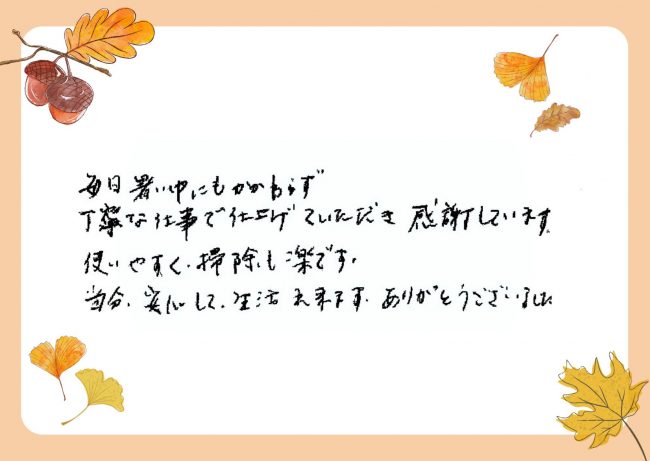 毎日暑い中にもかかわらず
丁寧な仕事で仕上げていただき 感謝しています
使いやすく、掃除も楽です。
当分、安心して、生活出来ます。ありがとうございました